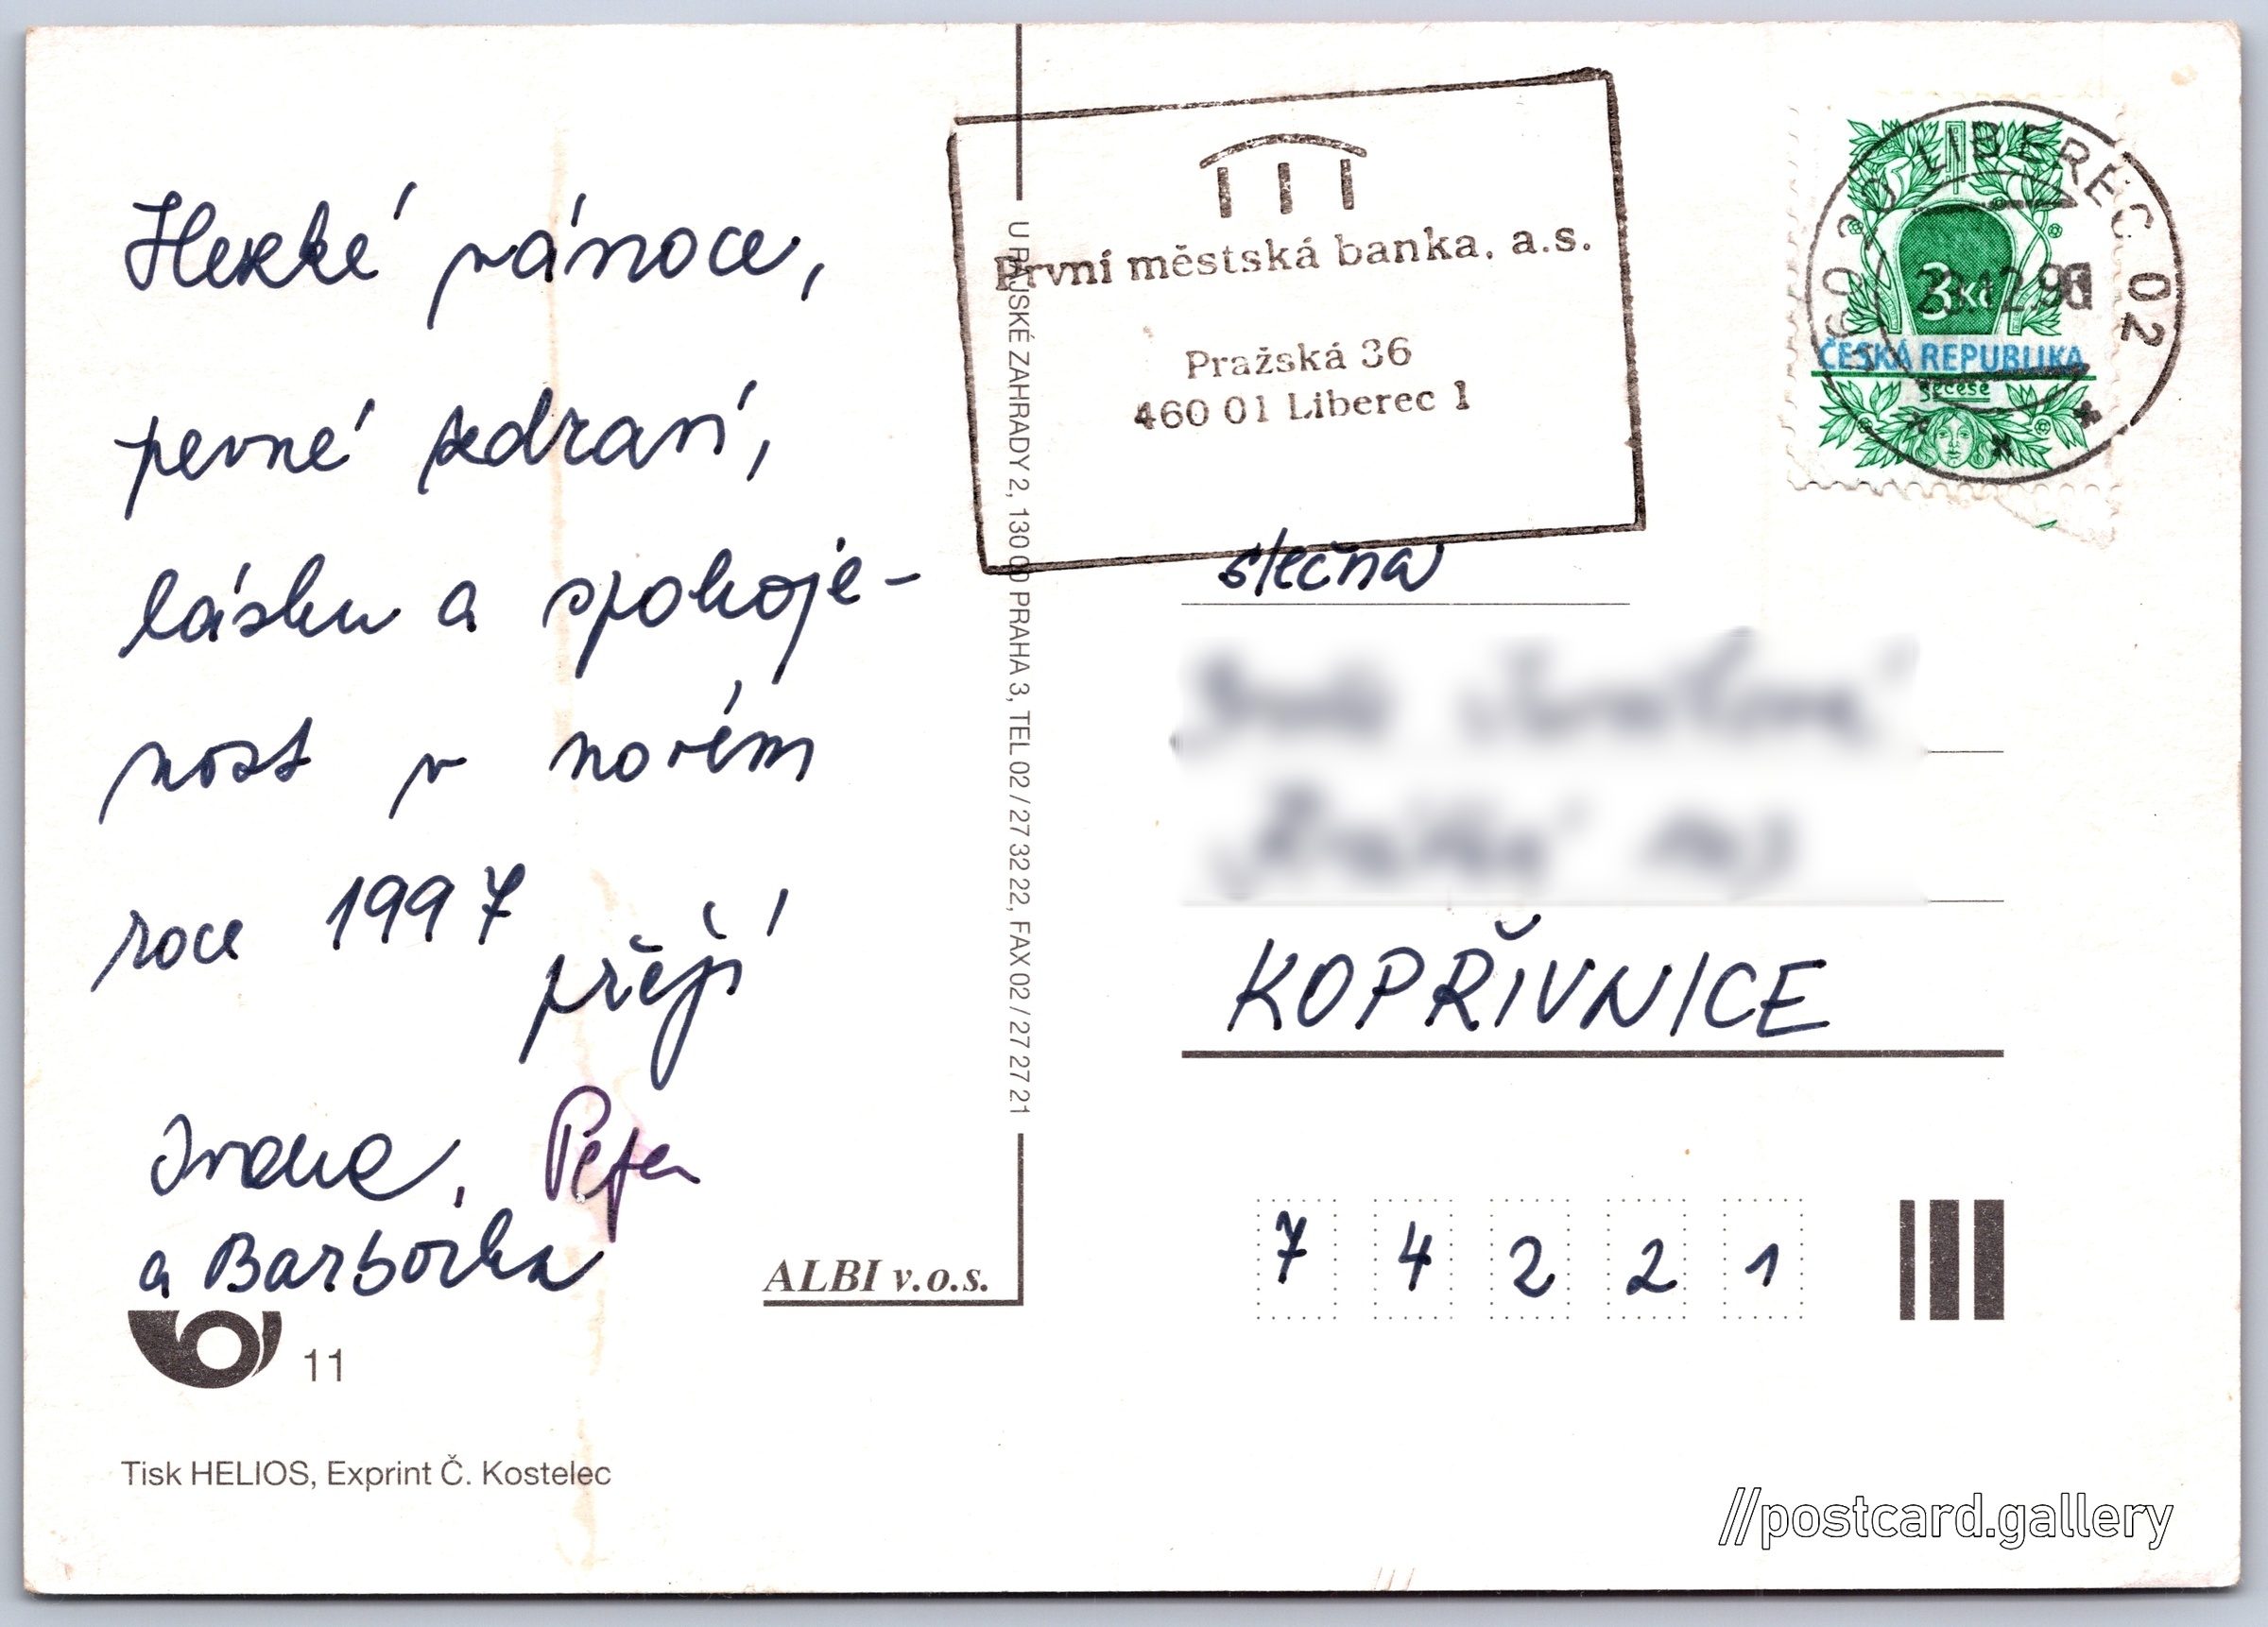 Hezké vánoce,
pevné zdraví,
lásku a spokoje-
nost v novém
roce 1997
přejí
Ivana, Peter
a Barborka
11
Tisk HELIOS, Exprint Č. Kostelec
ALBI v.o.s.
U RAJSKÉ ZAHRADY 2, 130 00 PRAHA 3, TEL 02 / 27 32 22, FAX 02 / 27 27 21
První městská banka, a.s.
Pražská 36
460 01 Liberec 1
LIBEREC 02
23.12.9
3 Kč
ČESKÁ REPUBLIKA
secese
slečna
KOPŘIVNICE
7 4 2 2 1
//postcard.gallery